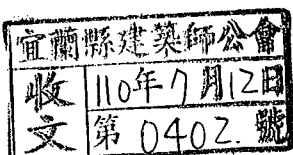 宜蘭縣建築師公會
收文
110年7月12日
第0402.號